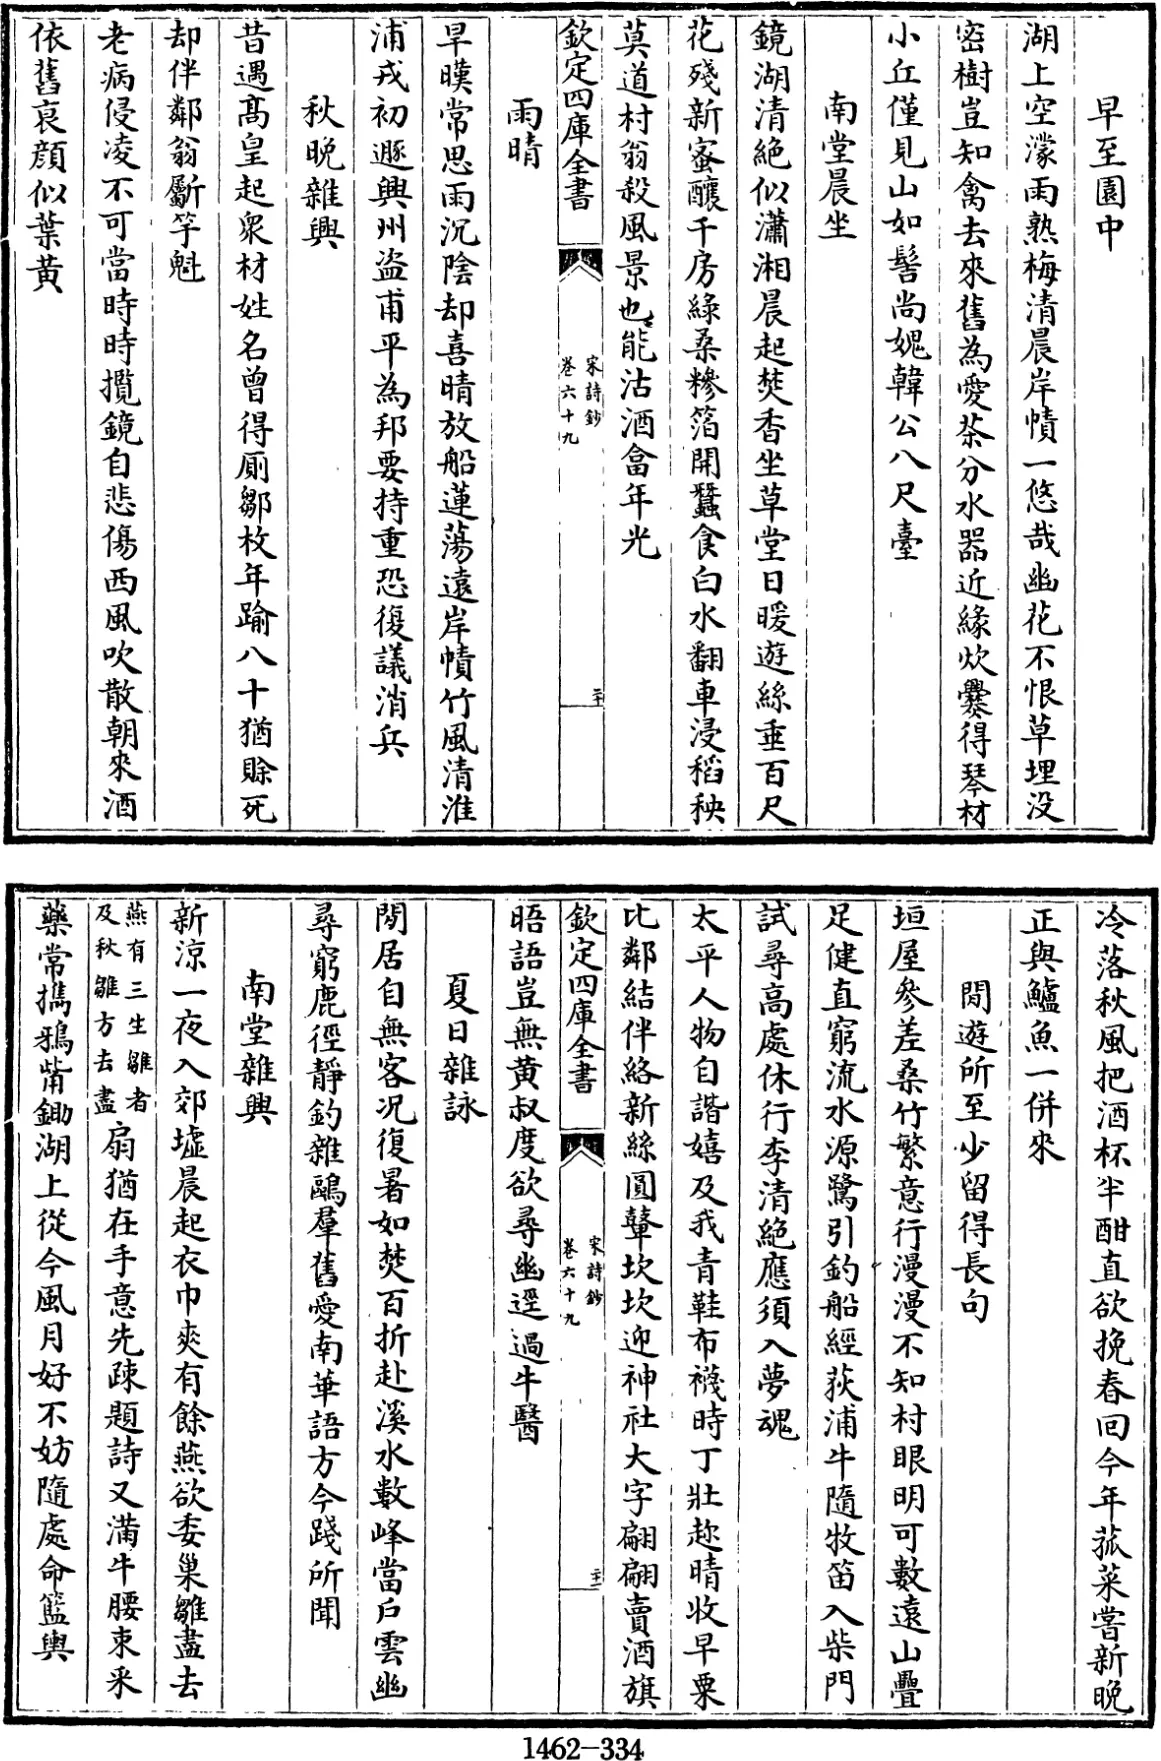 早至園中
湖上空濛雨熟梅清晨岸幘一悠哉幽花不恨草埋没
密樹豈知禽去來舊為愛茶分水器近緣炊爨得琴材
小丘僅見山如髻尚媿韓公八尺臺
南堂晨坐
鏡湖清絶似瀟湘晨起焚香坐草堂日暖遊絲垂百尺
花殘新蜜釀千房綠桑糝箔開蠶食白水翻車浸稻秧
莫道村翁殺風景也能沽酒畲年光
欽定四庫全書
宋詩鈔
卷六十九
二十
雨晴
旱暵常思雨沉陰却喜晴放船蓮蕩遠岸幘竹風清淮
浦戎初遯興州盗甫平為邦要持重恐復議消兵
秋晚雜興
昔遇髙皇起衆材姓名曾得厠鄒枚年踰八十猶賒死
却伴鄰翁斸芋魁
老病侵凌不可當時時攬鏡自悲傷西風吹散朝來酒
依舊衰顔似葉黄
冷落秋風把酒杯半酣直欲挽春回今年菰菜嘗新晚
正與鱸魚一併來
閒遊所至少留得長句
垣屋參差桑竹繁意行漫漫不知村眼明可數遠山疊
足健直窮流水源鷺引釣船經荻浦牛隨牧笛入柴門
試尋高處休行李清絶應須入夢魂
太平人物自諧嬉及我青鞋布襪時丁壯趂晴收早粟
比鄰結伴絡新絲圓鼙坎坎迎神社大字翩翩賣酒旗
欽定四庫全書
宋詩鈔
卷六十九
二十一
晤語豈無黄叔度欲尋幽逕過牛醫
夏日雜詠
閒居自無客况復暑如焚百折赴溪水數峰當户雲幽
尋窮鹿徑静釣雜鷗羣舊愛南華語方今踐所聞
南堂雜興
新涼一夜入郊墟晨起衣巾爽有餘燕欲委巢雛盡去
燕有三生雛者
及秋雛方去盡
扇猶在手意先疎題詩又滿牛腰束采
藥常擕鴉觜鋤湖上從今風月好不妨隨處命籃輿
1462-334